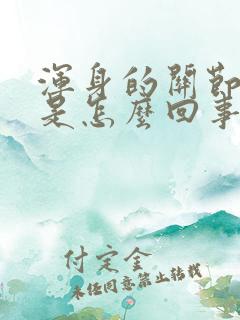 渾身的關節
是怎麼回事
付定金
未经同意禁止转载